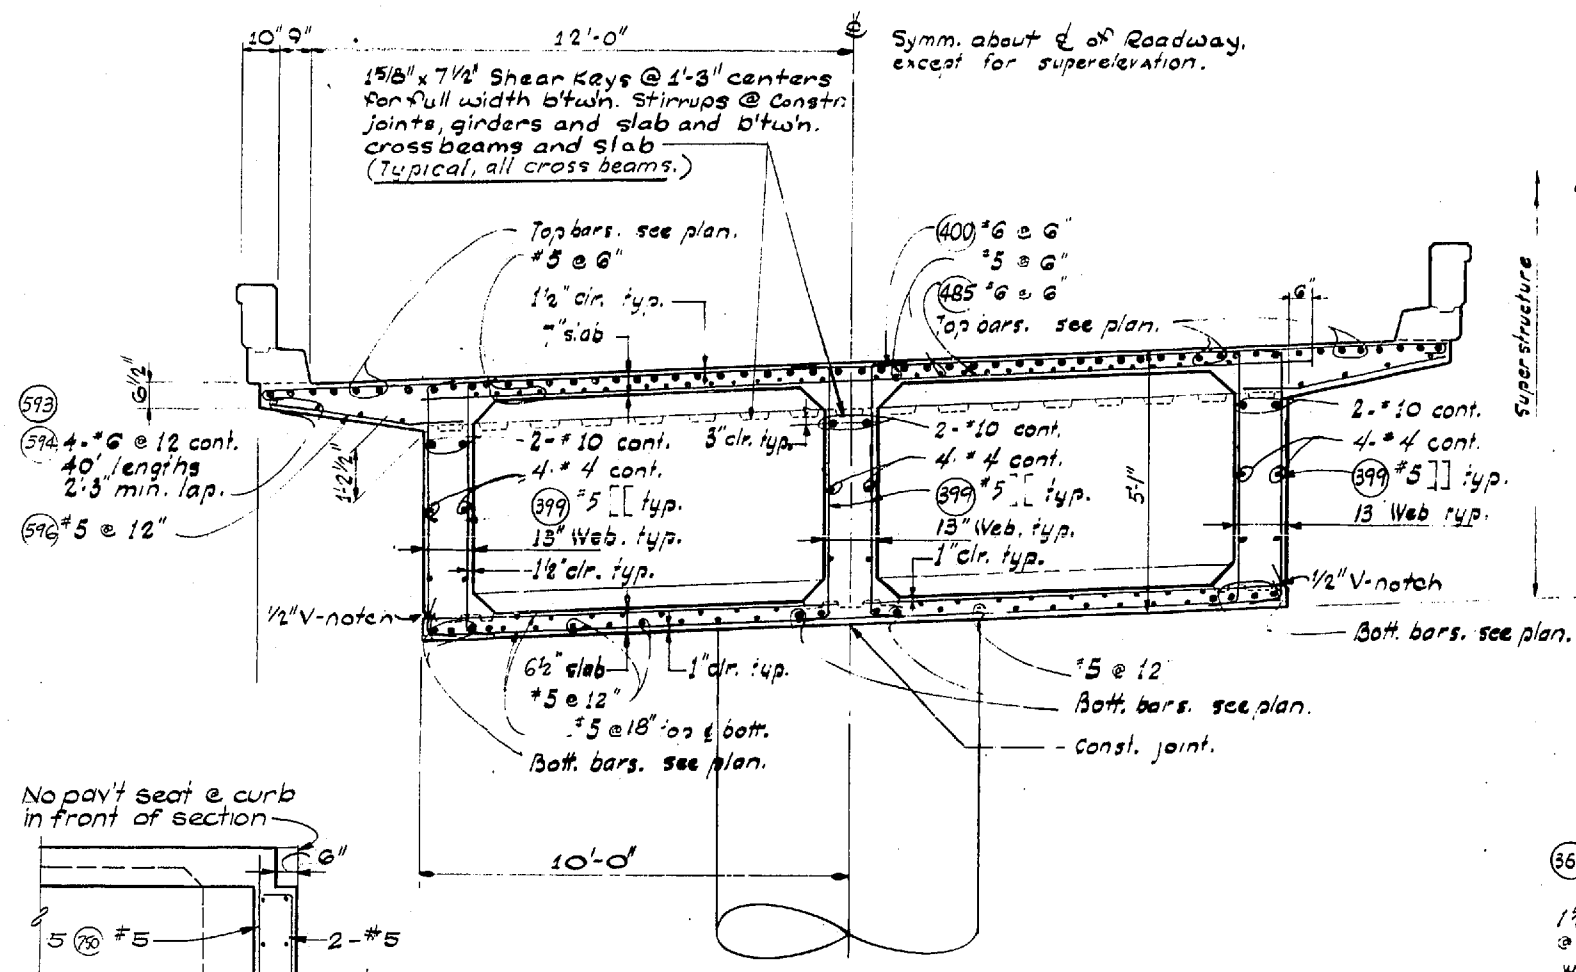 10" 9"
12'-0"
℄
Symm. about ℄ of Roadway,
except for superelevation.
1 5/8" x 7 1/2" Shear Keys @ 1'-3" centers
for full width b'tw'n. Stirrups @ Constr.
joints, girders and slab and b'tw'n.
cross beams and slab
(Typical, all cross beams.)
Top bars. see plan.
#5 @ 6"
1 1/2" clr. typ.
7" slab
400 #6 @ 6"
#5 @ 6"
485 #6 @ 6"
Top bars. see plan.
6"
Superstructure
6 1/2"
593
594 4-#6 @ 12 cont.
40' lengths
2'-3" min. lap.
596 #5 @ 12"
1'-2 1/2"
2-#10 cont.
4-#4 cont.
399 #5 [[ typ.
13" Web. typ.
1 1/2" clr. typ.
3" clr. typ.
2-#10 cont.
4-#4 cont.
399 #5 [[ typ.
13" Web. typ.
1" clr. typ.
5'-1"
2-#10 cont.
4-#4 cont.
399 #5 ]] typ.
13 Web typ.
1/2" V-notch
1/2" V-notch
Bott. bars. see plan.
6 1/2" slab
1" clr. typ.
#5 @ 12"
#5 @ 18" top & bott.
Bott. bars. see plan.
#5 @ 12
Bott. bars. see plan.
Const. joint.
10'-0"
No pav't seat @ curb
in front of section
6"
5 750 #5
2-#5
36
@